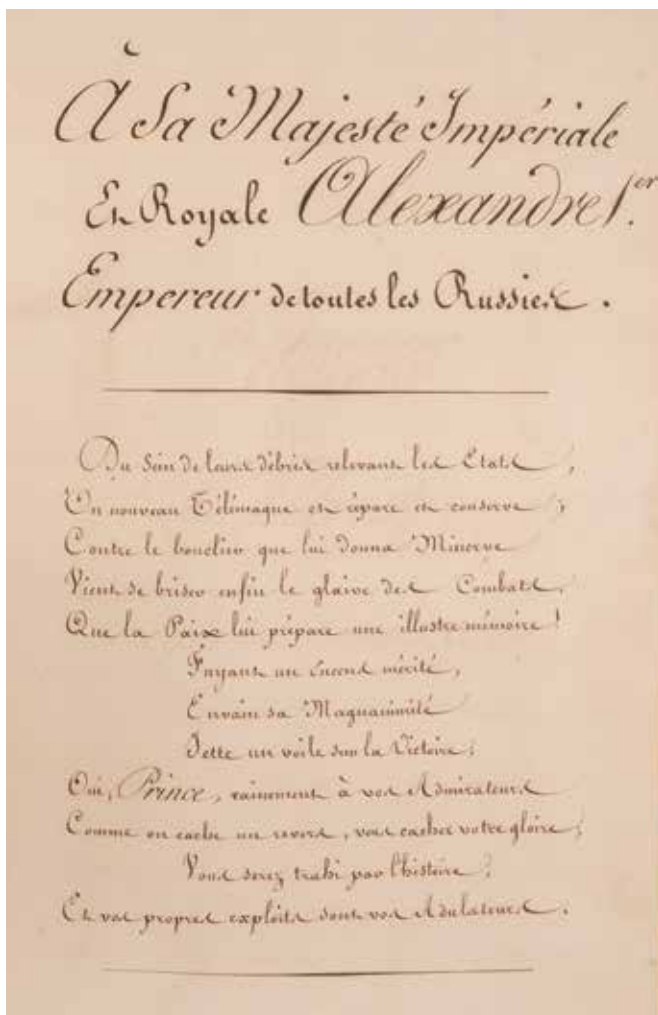 À Sa Majesté Impériale
Et Royale Alexandre 1.er
Empereur de toutes les Russies.
Du Sein de leurs débris relevant les États,
Un nouveau Télémaque et répare et conserve;
Contre le bouclier que lui donna Minerve
Vient se briser enfin le glaive des Combats,
Que la Paix lui prépare une illustre mémoire!
Fuyant un Encens mérité,
Envain sa Magnanimité
Jette un voile sur la Victoire;
Oui, Prince, vainement à vos Admirateurs
Comme on cache un revers, vous cachez votre gloire;
Vous serez trahi par l'histoire;
Et vos propres exploits sont vos Adulateurs.